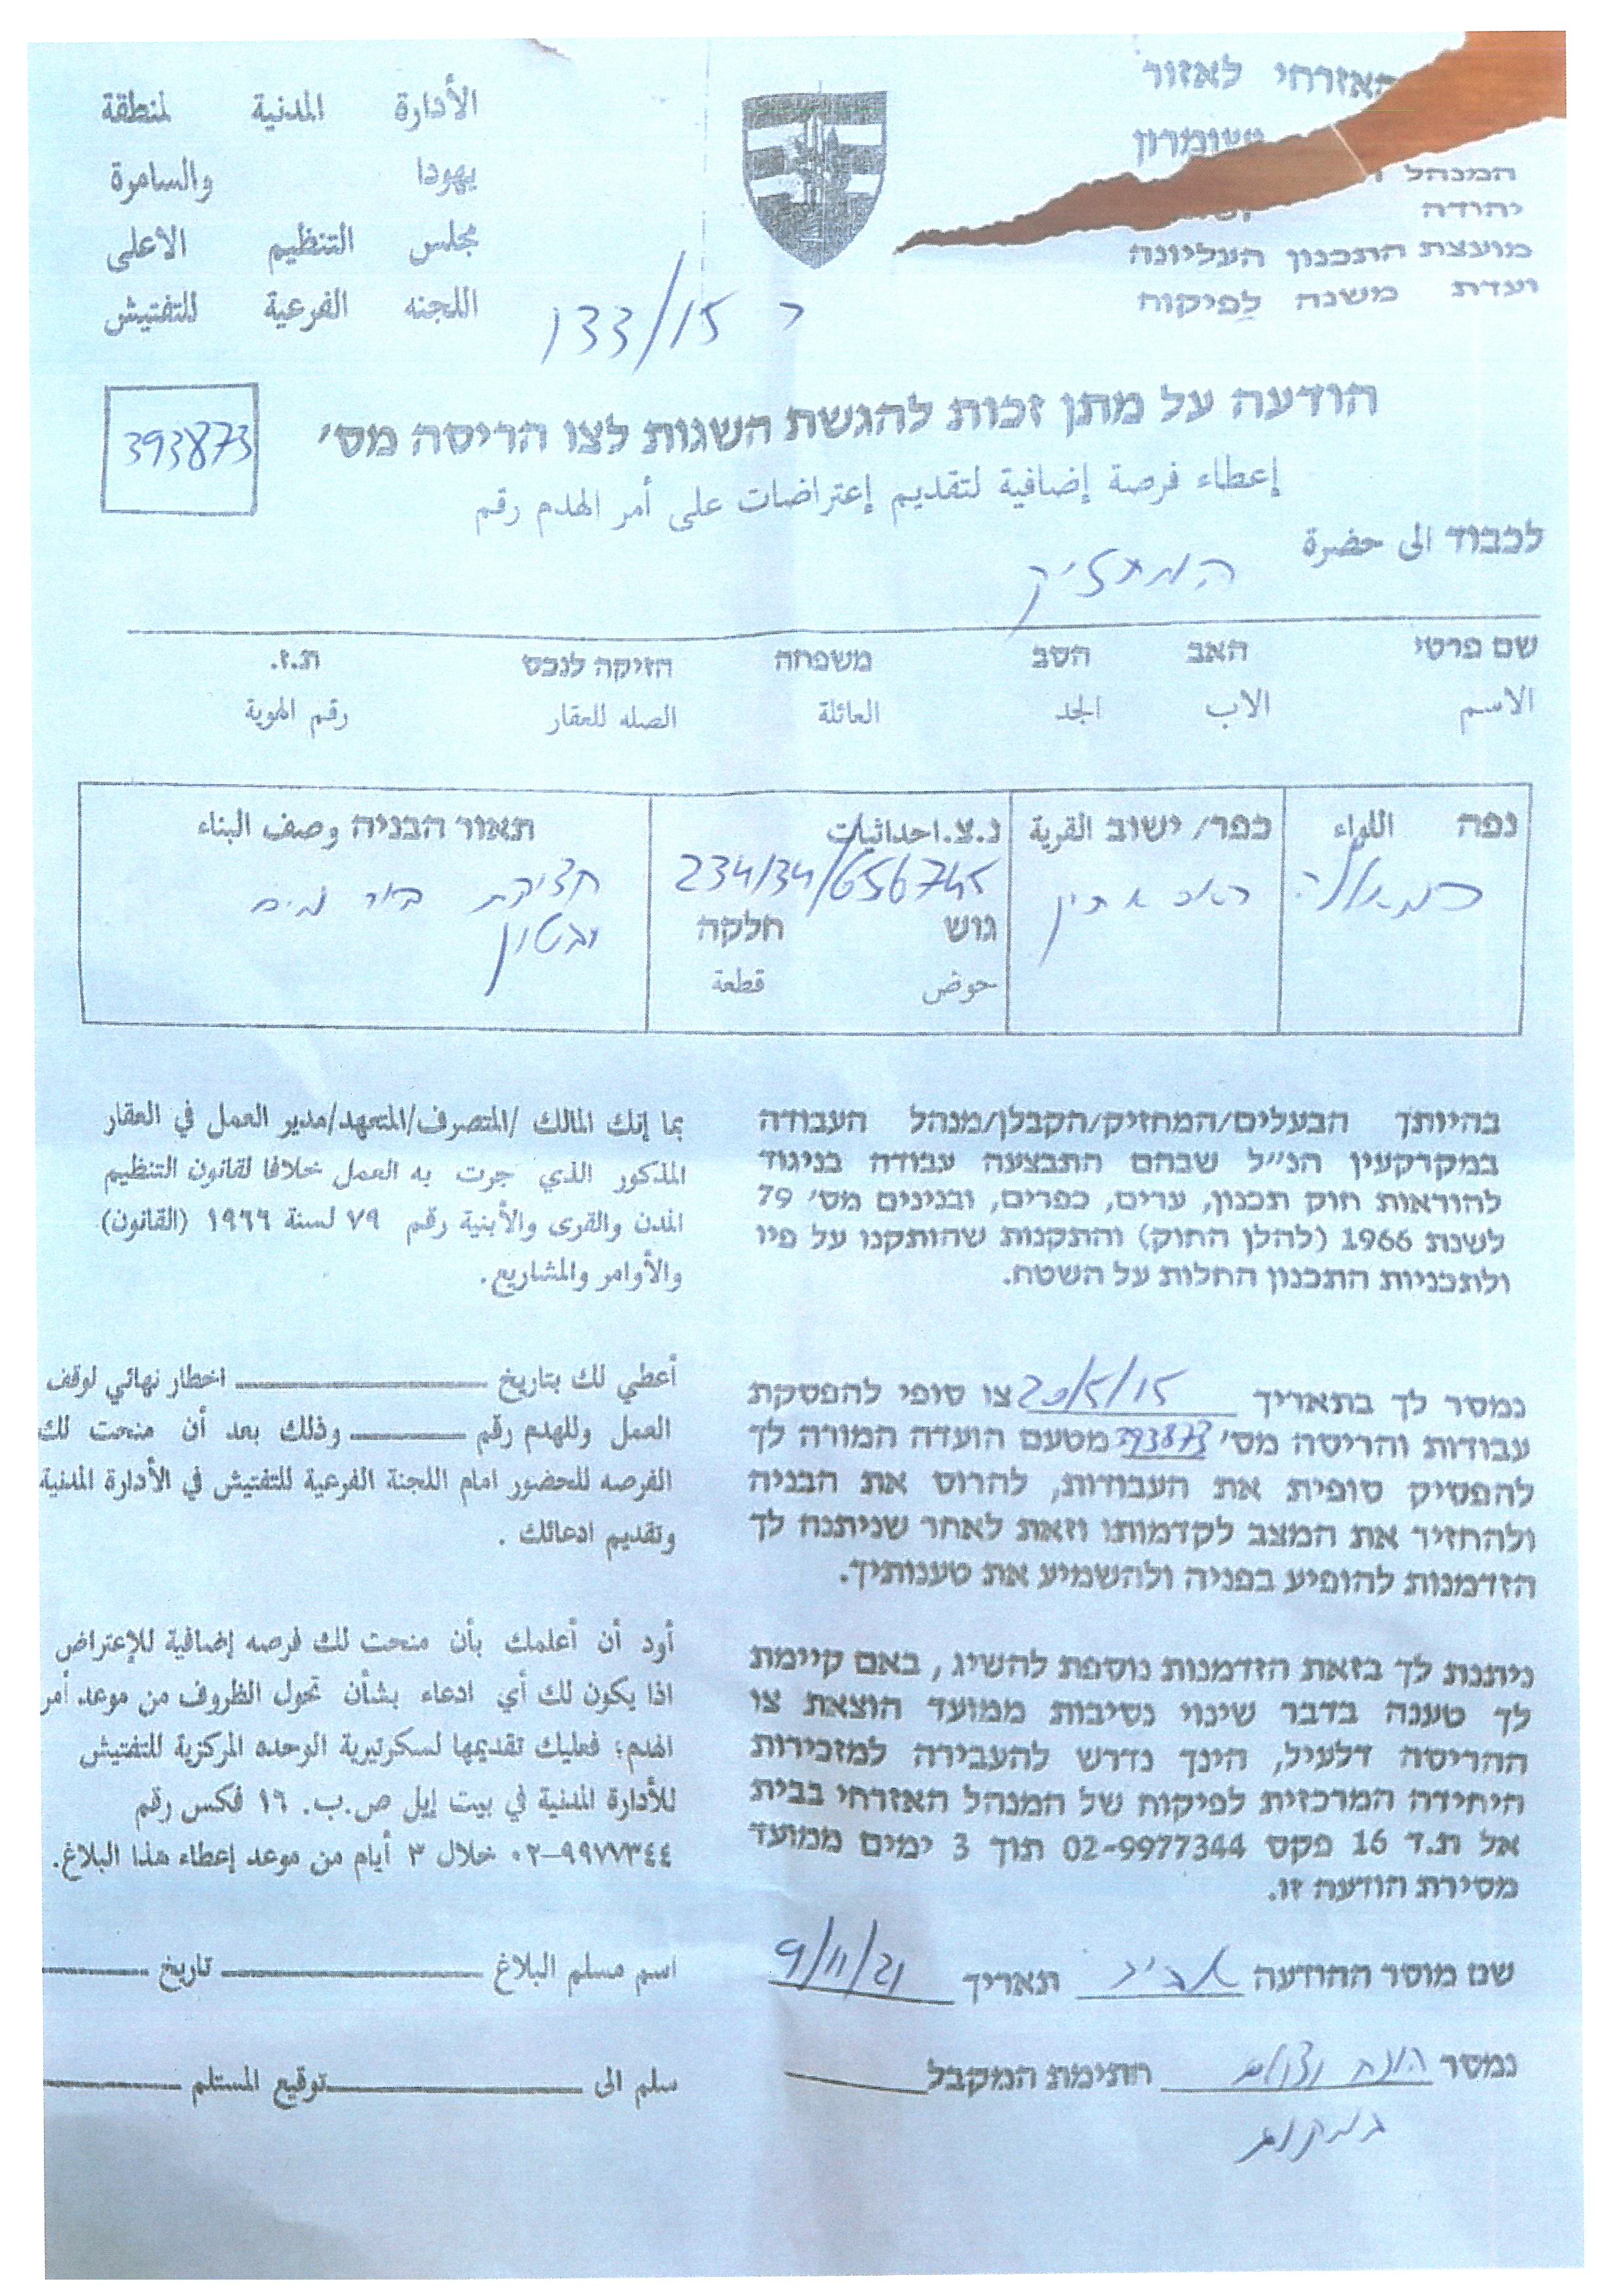 האזרחי לאזור
ושומרון
המנהל
יהודה
מועצת התכנון העליונה
ועדת משנה לפיקוח
الأدارة المدنية لمنطقة
يهودا والسامرة
مجلس التنظيم الاعلى
اللجنه الفرعية للتفتيش
ר 133/15
הודעה על מתן זכות להגשת השגות לצו הריסה מס׳
393873
إعطاء فرصة إضافية لتقديم إعتراضات على أمر الهدم رقم
לכבוד الى حضرة
המחזיק
שם פרטי האב הסב משפחה הזיקה לנכס ת.ז.
الاسم الاب الجد العائلة الصله للعقار رقم الهوية
נפה اللواء כפר/ ישוב القرية נ.צ.احداثيات תאור הבניה وصف البناء
רמאללה ראס א תין 234134/656745 חציבת בור מים
ובטון
גוש חלקה
حوض قطعة
בהיותך הבעלים/המחזיק/הקבלן/מנהל העבודה
במקרקעין הנ״ל שבהם התבצעה עבודה בניגוד
להוראות חוק תכנון, ערים, כפרים, ובנינים מס׳ 79
לשנת 1966 (להלן החוק) והתקנות שהותקנו על פיו
ולתכניות התכנון החלות על השטח.
بما إنك المالك /المتصرف/المتعهد/مدير العمل في العقار
المذكور الذي جرت به العمل خلافا لقانون التنظيم
المدن والقرى والأبنية رقم ٧٩ لسنة ١٩٦٦ (القانون)
والأوامر والمشاريع.
נמסר לך בתאריך 20/5/15 צו סופי להפסקת
עבודות והריסה מס׳ 393873 מטעם הועדה המורה לך
להפסיק סופית את העבודות, להרוס את הבניה
ולהחזיר את המצב לקדמותו וזאת לאחר שניתנה לך
הזדמנות להופיע בפניה ולהשמיע את טענותיך.
أعطي لك بتاريخ اخطار نهائي لوقف
العمل وللهدم رقم وذلك بعد أن منحت لك
الفرصه للحضور امام اللجنة الفرعية للتفتيش في الأدارة المدنية
وتقديم ادعائك .
ניתנת לך בזאת הזדמנות נוספת להשיג , באם קיימת
לך טענה בדבר שינוי נסיבות ממועד הוצאת צו
ההריסה דלעיל, הינך נדרש להעבירה למזכירות
היחידה המרכזית לפיקוח של המנהל האזרחי בבית
אל ת.ד 16 פקס 02-9977344 תוך 3 ימים ממועד
מסירת הודעה זו.
أود أن أعلمك بأن منحت لك فرصه إضافية للإعتراض
اذا يكون لك أي ادعاء بشأن تحول الظروف من موعد أمر
الهدم؛ فعليك تقديمها لسكرتيرية الوحده المركزية للتفتيش
للأدارة المدنية في بيت إيل ص.ب. ١٦ فكس رقم
٠٢-٩٩٧٧٣٤٤ خلال ٣ أيام من موعد إعطاء هذا البلاغ.
שם מוסר ההודעה אביב תאריך 9/11/21
اسم مسلم البلاغ تاريخ
נמסר הונח וצולם חתימת המקבל
במקום
سلم الى توقيع المستلم